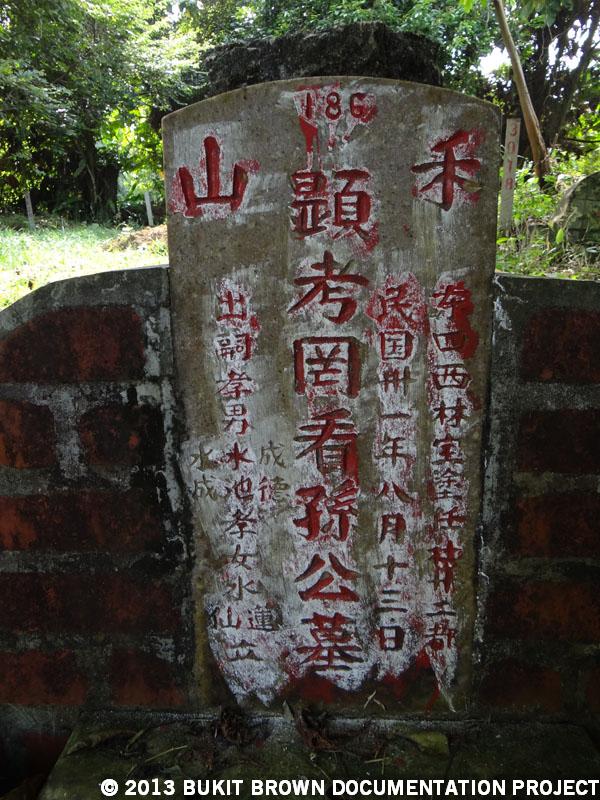 186
禾山
西林
民国卅一年八月十三日
顯考罔看孫公墓
成德
出嗣孝男水池孝女水
蓮
仙
立
水成
© 2013 BUKIT BROWN DOCUMENTATION PROJECT